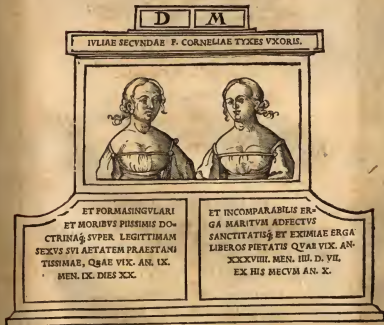 D M
IVLIAE SECVNDAE F. CORNELIAE TYXES VXORIS.
ET FORMASINGVLARI
ET MORIBVS PIISSIMIS DO-
CTRINAq́; SVPER LEGITTIMAM
SEXVS SVI AETATEM PRAESTANI
TISSIMAE, QVAE VIX. AN. IX.
MEN. IX. DIES XX.
ET INCOMPARABILIS ER-
GA MARITVM ADFECTVS
SANCTITATISq́; ET EXIMIAE ERGA
LIBEROS PIETATIS QVAE VIX. AN.
XXXVIIII. MEN. IIII. D. VII.
EX HIS MECVM AN. X.